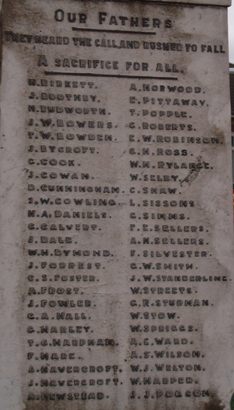 OUR FATHERS
THEY HEARD THE CALL AND RUSHED TO FALL
A SACRIFICE FOR ALL.
H. BIRKETT.
J. BOOTHEY.
H. BUDWORTH.
J. W. BOWERS.
T. W. BOWDEN.
J. BYCROFT.
C. COOK.
J. COWAN.
D. CUNNINGHAM.
S. W. COWLING.
H. A. DANIELS.
C. CALVERT.
J. DALE.
W. H. DYMOND.
J. FORREST.
C. S. FOSTER.
A. FROST.
J. FOWLER.
C. A. HALL.
C. HARLEY.
T. G. HARDMAN.
F. HARE.
A. HAVERCROFT.
J. HAVERCROFT.
A. NEWSTEAD.
A. NORWOOD.
E. PITTAWAY.
T. POPPLE.
G. ROBERTS.
E. W. ROBINSON.
C. H. ROSS.
W. H. RYLANCE.
W. SELBY.
C. SHAW.
L. SISSONS.
C. SIMMS.
F. E. SELLERS.
A. H. SELLERS.
F. SILVESTER.
C. W. SMITH.
J. W. STANDERLINE.
W. STREETS.
C. R. STURMAN.
W. STOW.
W. SPRIGGS.
A. E. WARD.
A. S. WILSON.
W. J. WELTON.
W. HARPER.